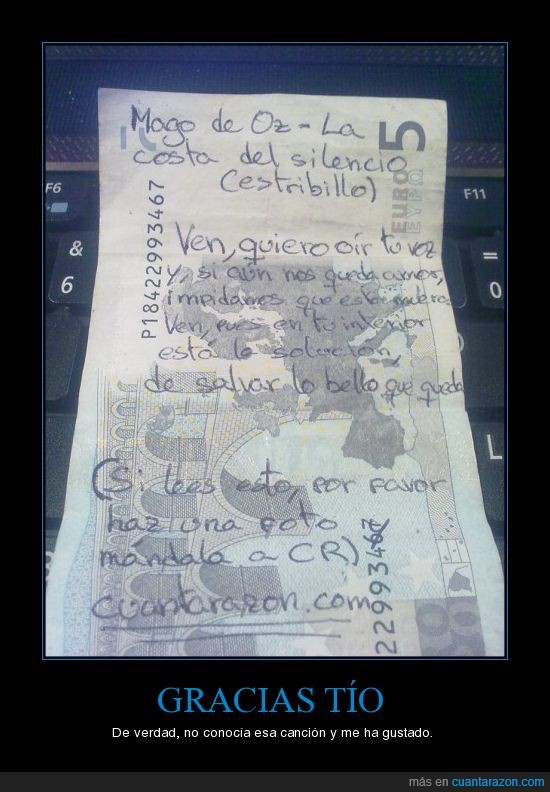 Mago de Oz - La
costa del silencio
(estribillo)
Ven, quiero oír tu voz
y, si aún nos queda amor,
impidamos que esto muera.
Ven, pues en tu interior
está la solución,
de salvar lo bello que queda
(Si lees esto, por favor
haz una foto
mándala a CR)
cuantarazon.com
5
EURO
ΕΥΡΩ
P18422993467
22993467
F6
F11
&
6
=
0
L
GRACIAS TÍO
De verdad, no conocía esa canción y me ha gustado.
más en cuantarazon.com